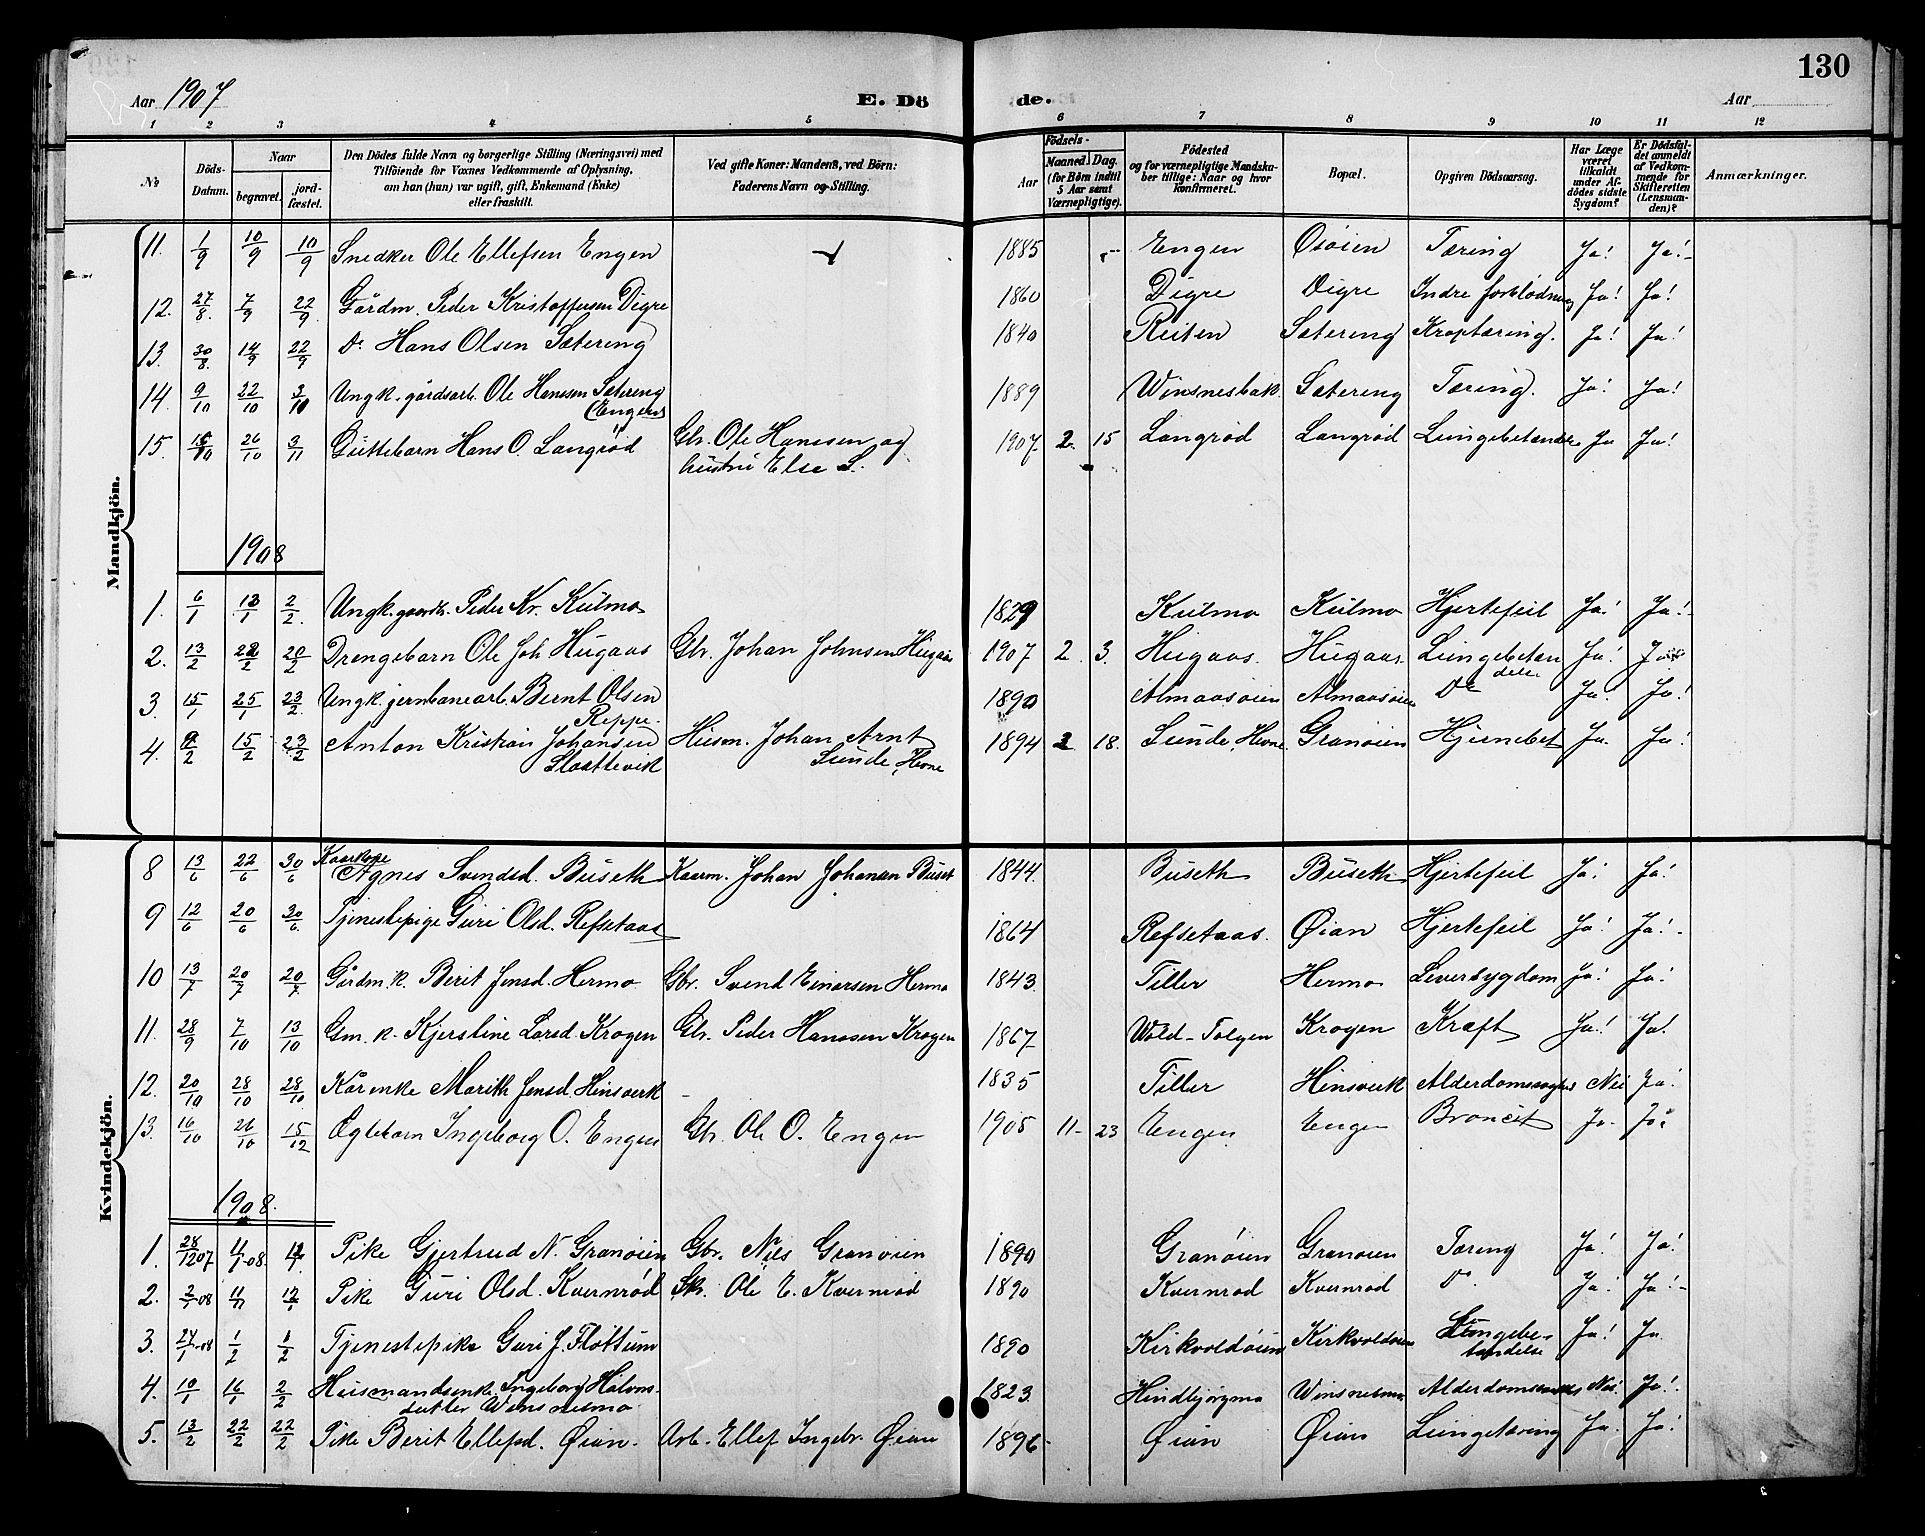 130
Aar 1907 E. Dö de. Aar
1 2 3 4 5 6 7 8 9 10 11 12
No Döds-Datum. Naar begravet. jord-fæstet. Den Dödes fulde Navn og borgerlige Stilling (Næringsvei) med Tilföiende for Voxnes Vedkommende af Oplysning, om han (hun) var ugift, gift, Enkemand (Enke) eller fraskilt. Ved gifte Koner: Mandens, ved Börn: Faderens Navn og Stilling. Födsels- Aar Maaned. Dag. (for Börn indtil 5 Aar samt Værnepligtige). Födested og for værnepligtige Mandskaber tillige: Naar og hvor konfirmeret. Bopæl. Opgiven Dödsaarsag. Har Læge været tilkaldt under Afdödes sidste Sygdom? Er Dödsfaldet anmeldt af Vedkommende for Skifteretten (Lensmanden)? Anmærkninger.
Mandkjön.
11. 1/9 10/9 10/9 Snedker Ole Ellefsen Engen 1885 Engen Osöien Tæring Ja! Ja!
12. 27/8 7/9 22/9 Gårdm. Peder Kristoffersen Digre 1860 Digre Digre Indre forblödning Ja! Ja!
13. 30/8 14/9 22/9 Do Hans Olsen Sætering 1840 Reiten Sætering Kroptæring. Ja! Ja!
14. 9/10 22/10 3/11 Ungk. gårdsarb. Ole Hanssen Sætereng (Engen) 1889 Winsnesbak. Sætering Tæring. Ja! Ja!
15. 15/10 26/10 3/11 Guttebarn Hans O. Langrød Gbr. Ole Hanssen og hustru Else S. 1907 2. 15 Langrød Langrød Lungebetændelse Ja Ja!
1908
1. 6/1 13/1 2/2 Ungk. gaardbr. Peder Kr. Kulmo 1829 Kulmo Kulmo Hjertefeil Ja! Ja!
2. 13/2 22/2 20/2 Drengebarn Ole Joh Hugaas Gbr. Johan Johnsen Hugaas 1907 2. 3. Hugaas. Hugaas. Lungebetændelse Ja! Ja
3. 15/1 25/1 23/2 Ungk jernbanearb. Bernt Olsen Reppe. 1890 Almaasøien Almaasøien Do Ja. Ja!
4. 9/2 15/2 23/2 Anton Kristian Johansen Slaattevik Husm. Johan Arnt Sunde, Hevne 1894 2 18. Sunde, Hevne Granøien Hjernebet Ja. Ja!
Kvindekjön.
8 13/6 22/6 30/6 Kaarkone Agnes Svendsd. Buseth Kaarm. Johan Johansen Buset 1844. Buseth Buseth Hjertefeil Ja. Ja!
9 12/6 20/6 30/6 Tjenestepige Guri Olsd. Refsetaas 1864 Refsetaas. Øian Hjertefeil Ja! Ja!
10 13/7 20/7 20/7 Gårdm. k Berit Jensd. Hermo Gbr. Svend Einarsen Hermo 1843. Tiller Hermo Leversygdom Ja! Ja!
11. 28/9 7/10 13/10 Gm. k. Kjerstine Larsd. Krogen Gbr. Peder Hanssen Krogen 1867 Wold-Tolgen Krogen Kræft Ja! Ja!
12. 20/10 28/10 28/10 Kårenke Marith Jensd. Hinsverk 1835 Tiller Hinsverk Alderdomssvaghed Nei Ja!
13. 16/10 26/10 15/12 Ægtebarn Ingeborg O. Engen Gbr. Ole O. Engen 1905 11- 23 Engen Engen Broncit Ja. Ja!
1908.
1. 28/12 07 11/1-08. 12/1 Pike Gjertrud N. Granøien Gbr. Nils Granøien 1890 Granøien Granøien Tæring Ja! Ja!
2. 2/1-08 11/1 12/1 Pike Guri Olsd. Kvernrød Sk. Ole E. Kvernrød 1890 Kvernrød Kvernrød Do. Ja! Ja!
3. 24/1-08 1/2 1/2 Tjenestepike Guri J. Fløttum 1890 Kirkvoldøien Kirkvoldøien Lungebetændelse Ja! Ja.
4. 10/1 16/1 2/2 Husmandsenke Ingeborg Halvorsdatter Winsnesmo 1823. Hindbjørgmo Winsnesmo Alderdomssvaghed Nei. Ja!
5. 13/2 22/2 22/2 Pike Berit Ellefsd. Øian. Arb. Ellef Ingebr. Øian 1896 Øian Øian Lungetæring Ja. Ja!